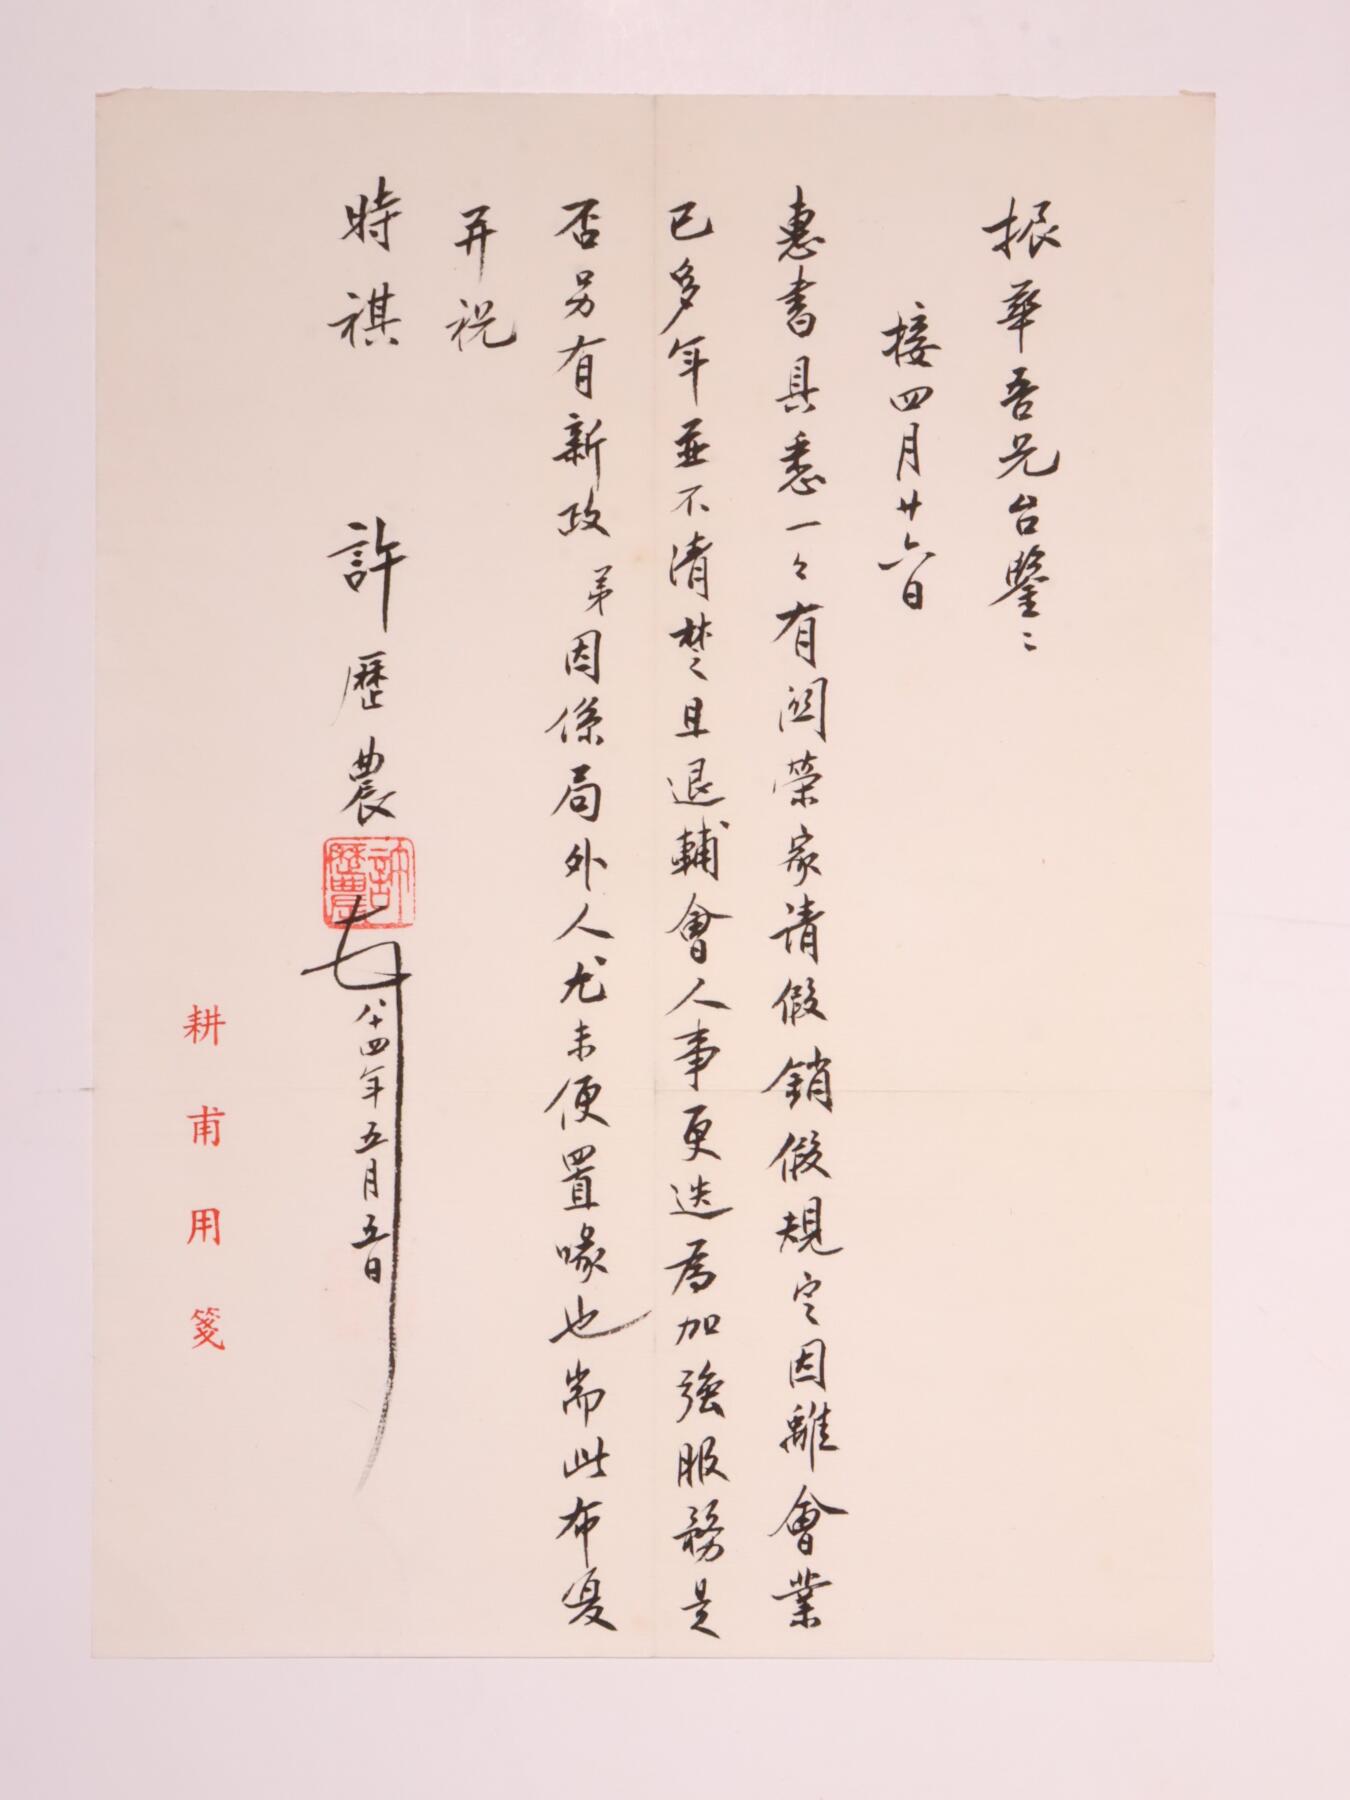 振華吾兄台鑒：
接四月廿六日
惠書具悉一々有関榮家請假銷假規定因離會業
已多年並不清楚且退輔會人事更迭為加強服務是
否另有新政弟因係局外人尤未便置喙也耑此布复
并祝
時祺
許歷農
許歷農
八十四年五月五日
耕甫用箋